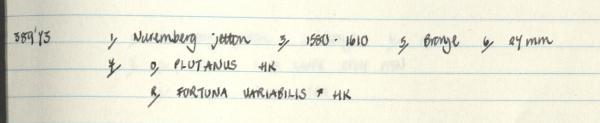 389'73 1, Nuremberg jetton 3, 1580 - 1610 5, Bronze 6, 24 mm
7, O, PLUTANUS HK
R, FORTUNA VARIABILIS * HK